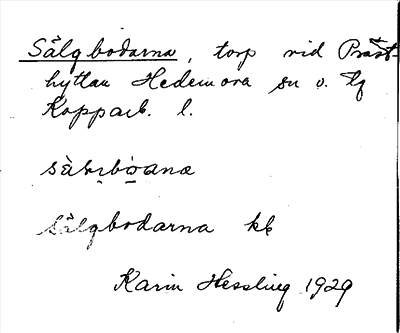 Sålgbodarna, torp vid Präst-
hyttan Hedemora sn o. tg
Kopparb. l.
sàḷrbo̱ana
Sålgbodarna kk
Karin Hessling 1929